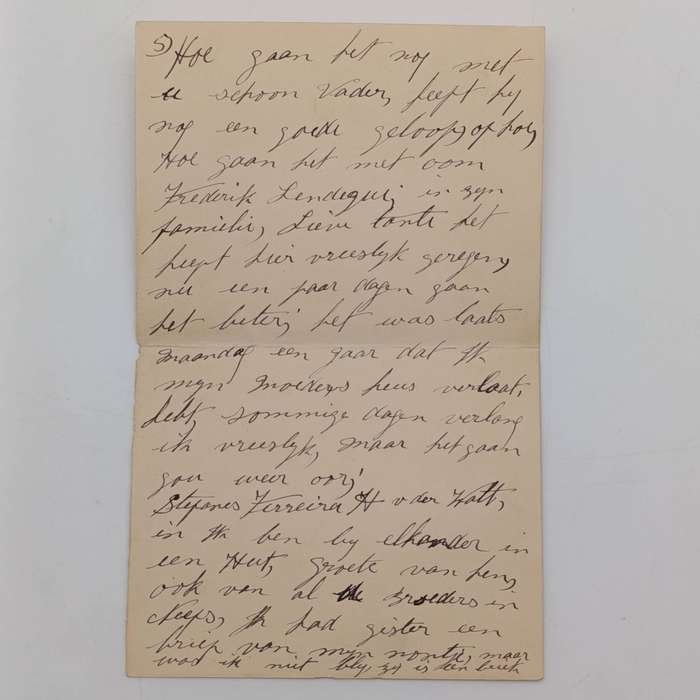 5) Hoe gaan het nog met
u schoon Vader, heeft hy
nog een goede geloof, op hoe,
Hoe gaan het met oom
Frederik in zyn
familie, Lieve tante het
heeft hier vreeslyk geregen,
nu een paar dagen gaan
het beter; het was laats
maandag een jaar dat Ik
myn Moeders huis verlaat,
hebt, sommige dagen verlang
ik vreeslyk, maar het gaan
gou weer oor;
Stefanes Ferreira H v der Watt,
in Ik ben by elkander in
een Hut, groete van hen,
ook van al de Broeders in
Neefs, Ik had gister een
brief van myn maar
was ik niet bly, zy is den